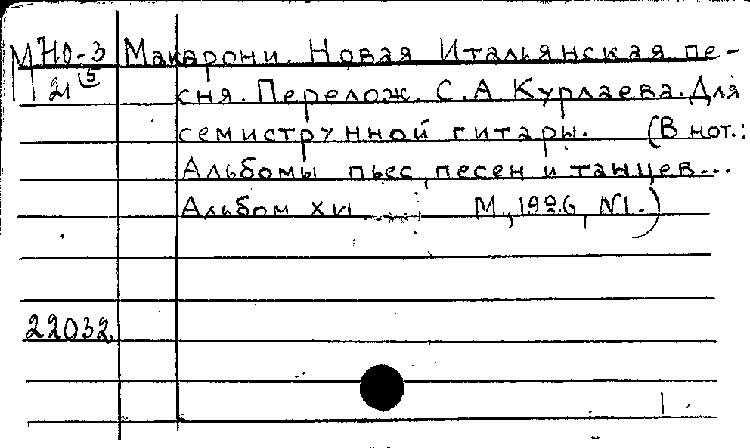 М 710-3 Макарони. Новая Итальянская пе-
21 (5 сня. Перелож. С.А Курлаева. Для
семиструнной гитары. (В нот.:
Альбомы пьес, песен и танцев...
Альбом XVI М, 1926, №1.)
22032